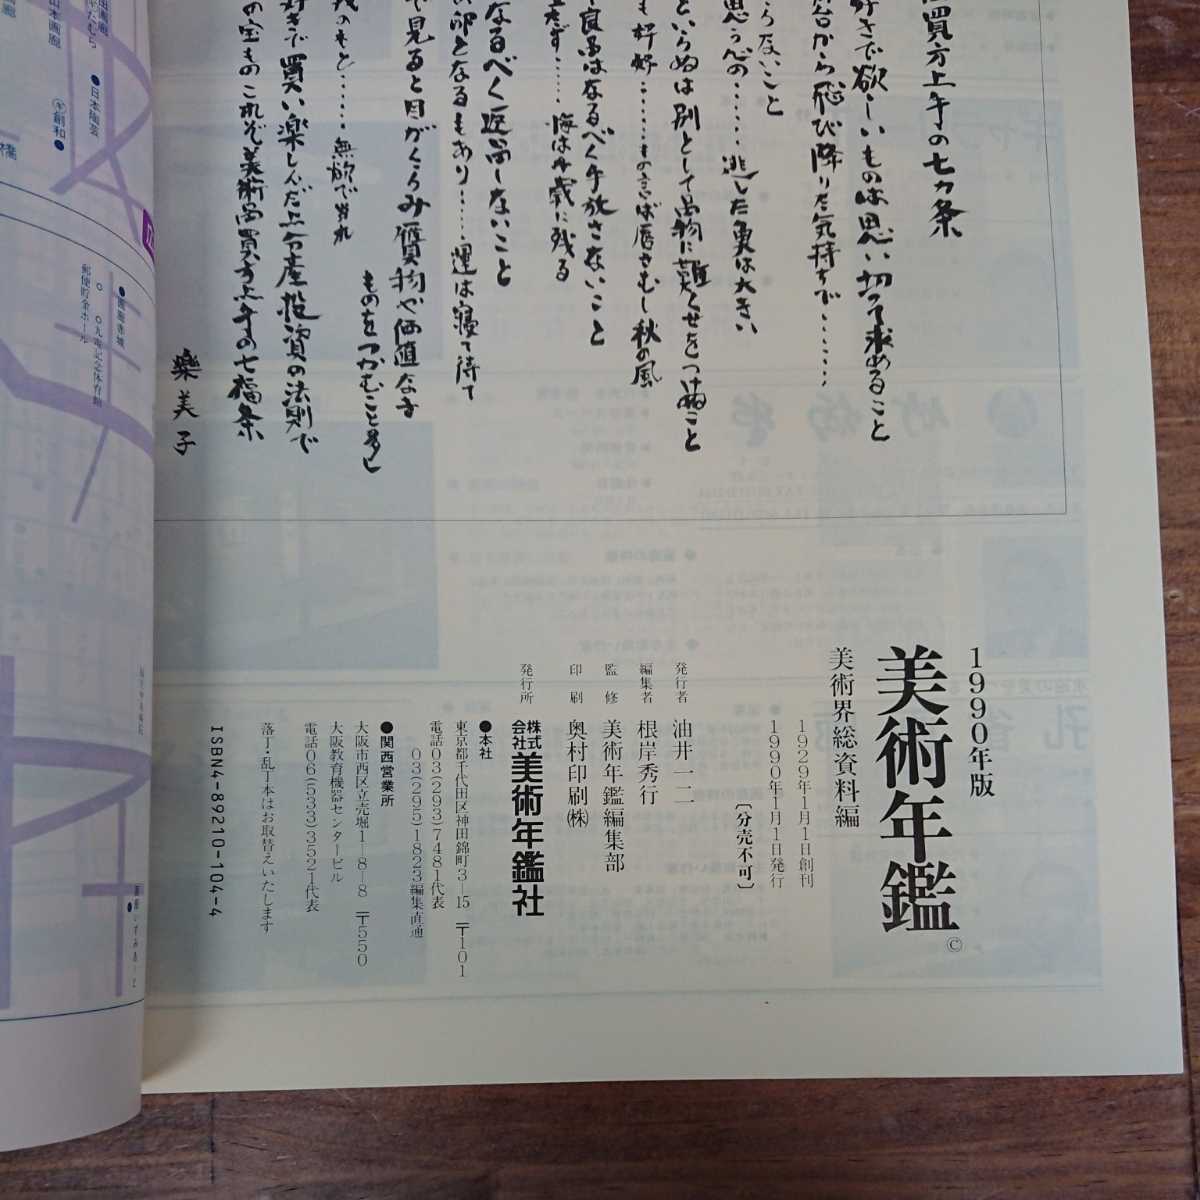 買方上手の七カ条
好きで欲しいものは思い切って求めること
台から飛び降りた気持ちで……
らないこと
思う心の……逃した魚は大きい
といらぬは別として品物に難くせをつけぬこと
も奸妍……もの言ば唇さむし秋の風
良品はなるべく手放さないこと
立たず……悔は千歳に残る
なるべく返品しないこと
の卵となるもあり……運は寝て待て
で見ると目がくらみ贋物や価値なき
ものをつかむこと多し
残のもと……無欲で当れ
好きで買い楽しんだ上分産投資の法則で
の宝ものこれぞ美術品買方上手の七福条
樂美子
1990年版
美術年鑑©
美術界総資料編
1929年1月1日創刊
1990年1月1日発行
〔分売不可〕
発行者 油井一二
編集者 根岸秀行
監修 美術年鑑編集部
印刷 奥村印刷(株)
発行所 株式会社美術年鑑社
●本社
東京都千代田区神田錦町3-15 〒101
電話03(293)7481代表
03(295)1823編集直通
●関西営業所
大阪市西区立売堀1-8-8 〒550
大阪教育機器センタービル
電話06(533)3521代表
落丁・乱丁本はお取替えいたします
ISBN4-89210-104-4
田画廊
やたむら
●日本陶芸
山木画廊
㋖創和●
橋
●画廊赤坂
○九電記念体育館
○郵便貯金ホール